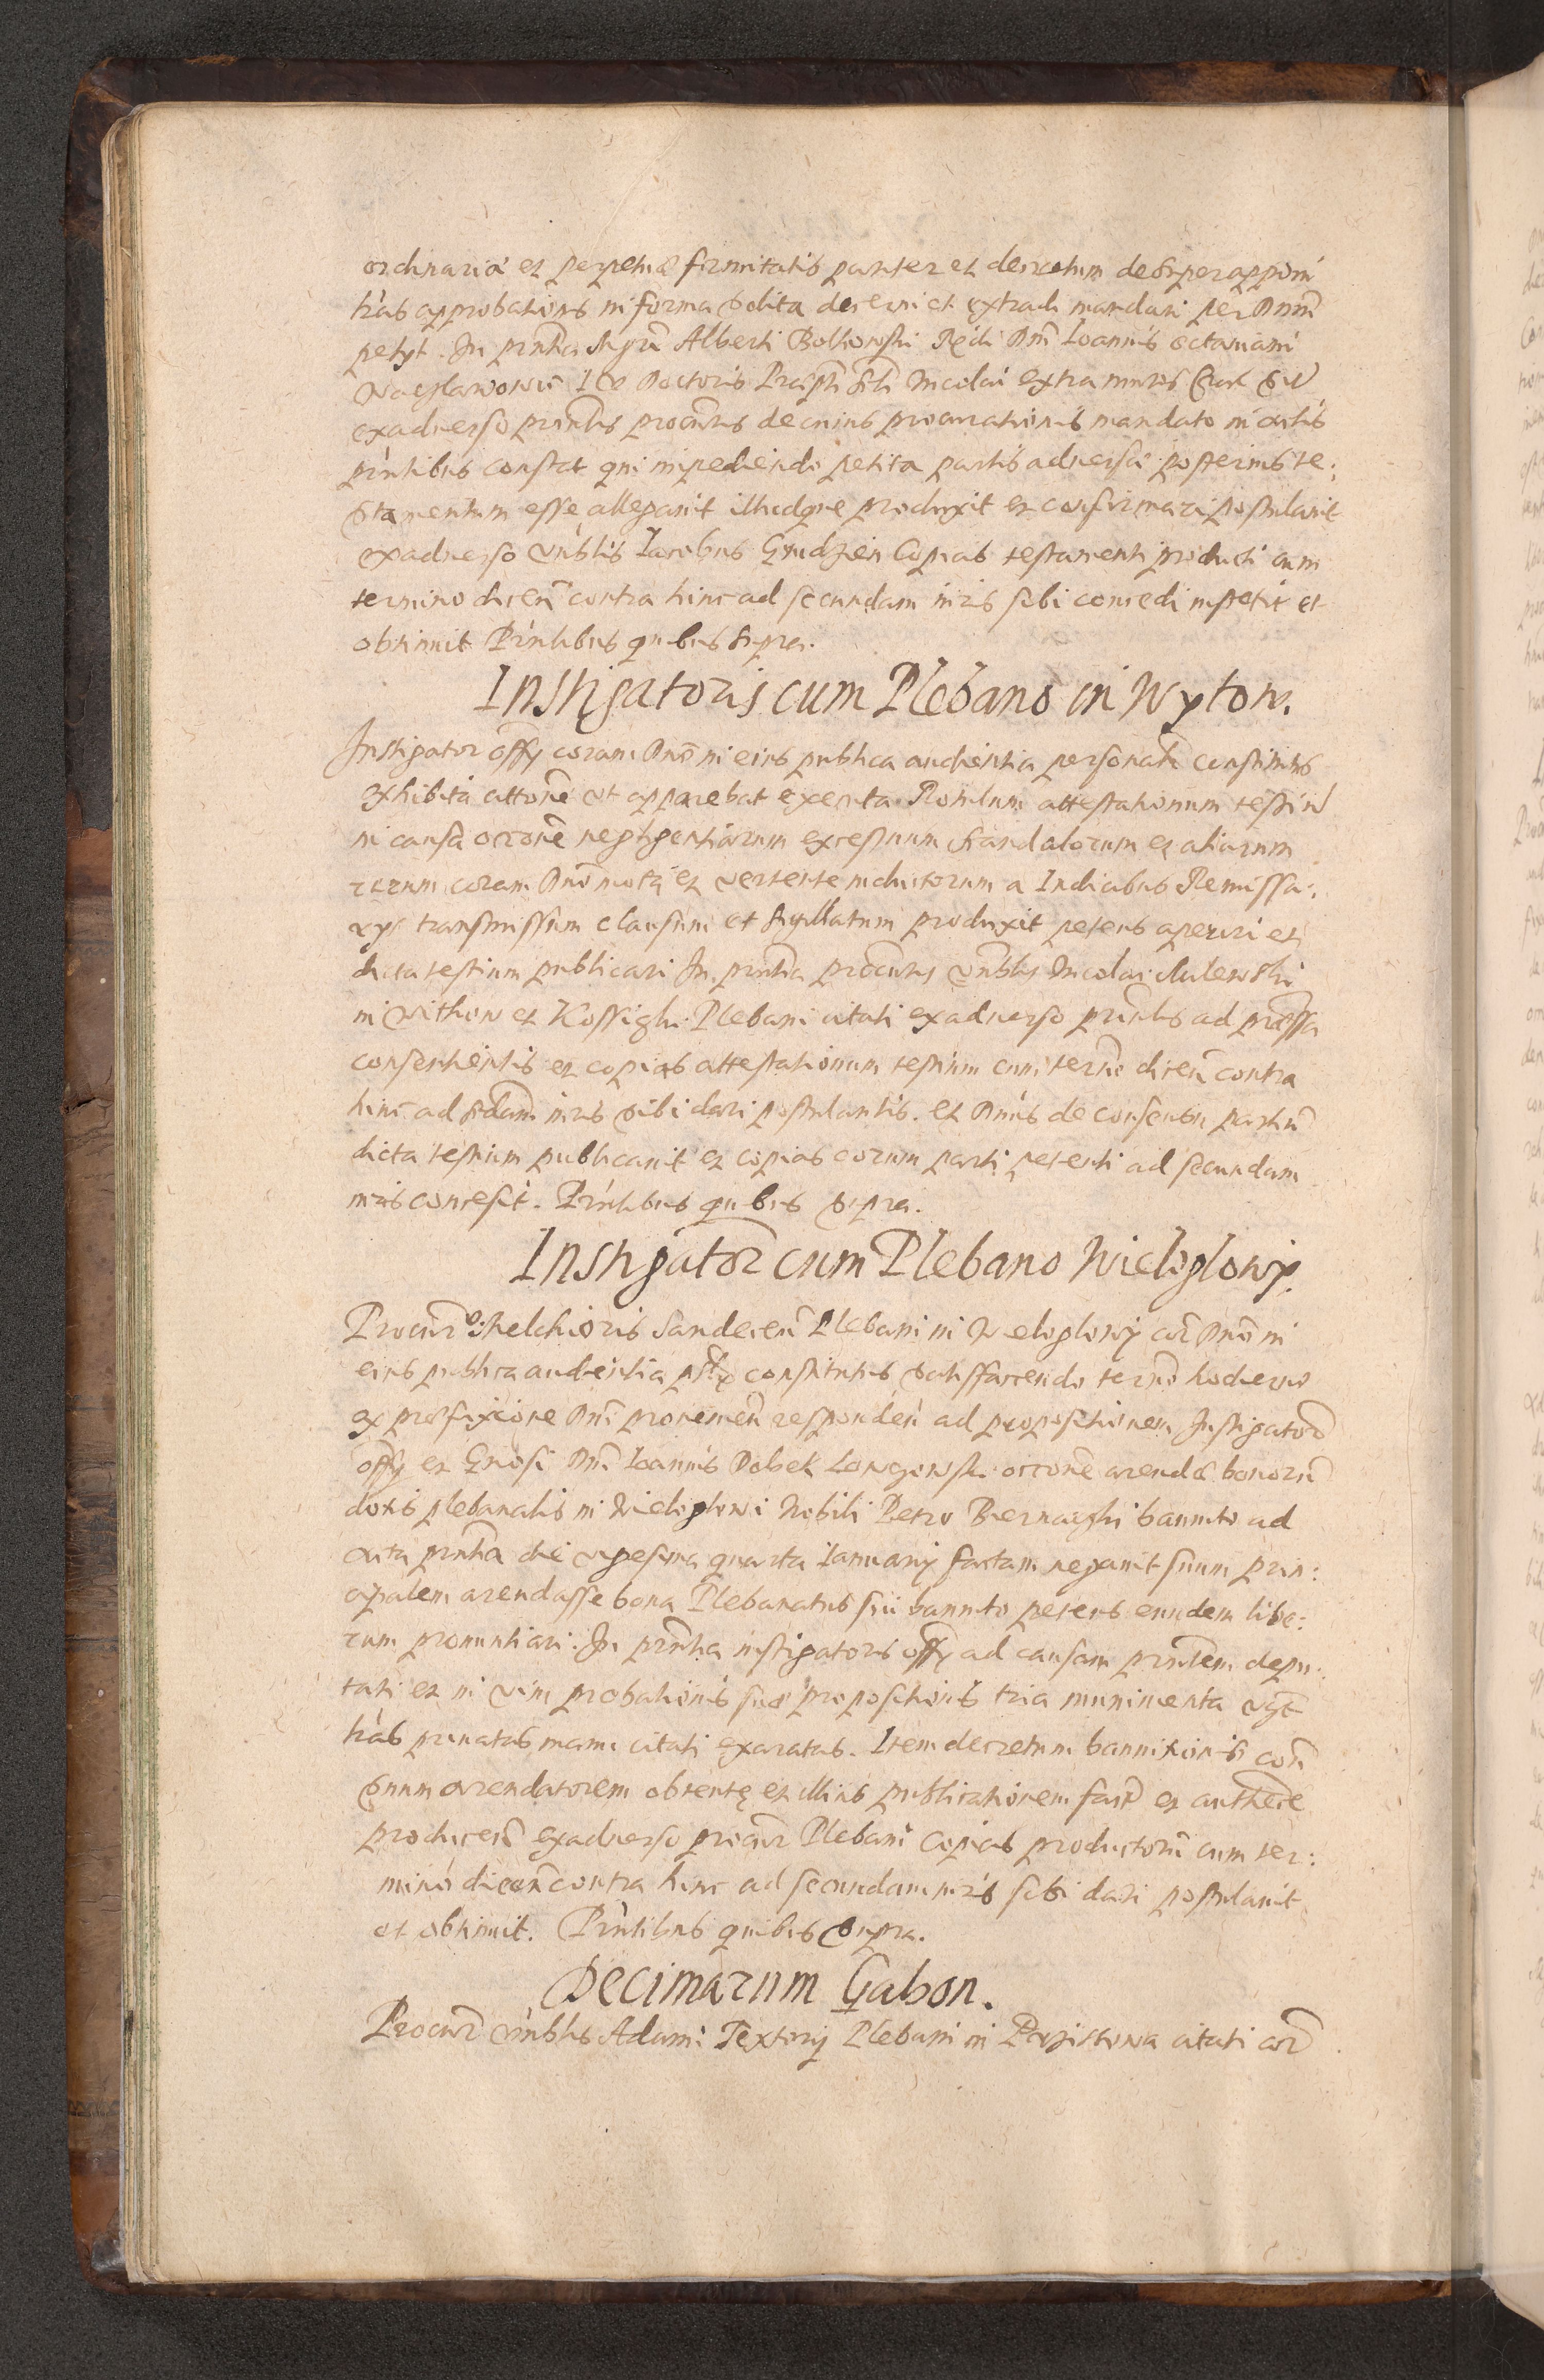 ordinariæ et perpetuæ firmitatis pariter et decretum desuper apponi
lr̃as approbationis in forma solita decerni et extradi mandari per Dnum̃
petyt. In pñtia Alberti Bolkowski Rĩdi Dnĩ Ioannis Octaviani
Waczlawowic I V Doctoris Præpti Sti Nicolai extra muros Crac
exadverso pñtis procuris de cuius procurationis mandato in actis
pñtibus constat qui impediendo petita partis adversæ posterius te:
stamentum esse allegavit illudque produxit et confirmari postulavit
exadverso vñblis Iacobus Grudzien Copias testamenti producti cum
termino dicen̄ contra hinc ad secundam iuris sibi concedi inpetit et
obtinuit Pr̃ntibus quibus supra.
Instigatoris cum Plebano in Wytow.
Instigator offy coram Dnõ in eius publica audientia personalr constitutus
exhibita attone ut apparebat executa Rotulum attestationum testiũ
in causa occõne negligentiarum excessuum scandalorum et aliarum
rerum coram Dnõ motæ et vertente inductorum a Iudicibus Remissa:
rys transmissum clausum et sigillatum produxit petens aperiri et
dicta testium publicari In pñtia procuris vñblis Nicolai Aulewski
in Withow et Kossighi Plebani citati exadverso pñtis ad præssa
consentientis et copias attestationum testium cum termo dicen̄ contra
hinc ad scdam iuris sibi dari postulantis. et Dnus de consensu partiũ
dicta testium publicavit et copias eorum parti petenti ad secundam
iuris concessit. Pr̃ntibus quibus supra.
Instigator cum Plebano Wielogłowy.
Procur v: Melchioris Sandecen̄ Plebani in Wielogłowy cor̃ Dnõ in
eius publica audientia pslr constitutus satisfaciendo termo hodierno
ex præfixione Dnĩ provenien̄ responden̄ ad propositionem Instigator
offy et Gnõsi Dnĩ Ioannis Dobek Lowczowski occõne arendæ bonorũ
dotis plebanalis in Wielogłowi Nobili Petro Biernaczki bannito ad
acta pñtia die vigesima quarta Ianuarij factam negavit suum prin:
cipalem arendasse bona Plebanatus sui bannito petens eundem libe:
rum pronuntiari. In pñtia instigatoris offy ad causam pñtem depu:
tati et in vim probationis suæ propositionis tria munimenta vzt
lr̃as privatas manu citati exaratas. Item decretum bannitionis con̄
suum arendatorem obtentæ et illius publicationem fact et authen̄ce
producen̄ exadverso procur Plebani copias productorũ cum ter:
mino dicen̄ contra hinc ad secundam iuris sibi dari postulavit
et obtinuit. Pr̃ntibus quibus supra.
Decimarum Gabon.
Procur vñblis Adami Textorij Plebani in citati cor̃